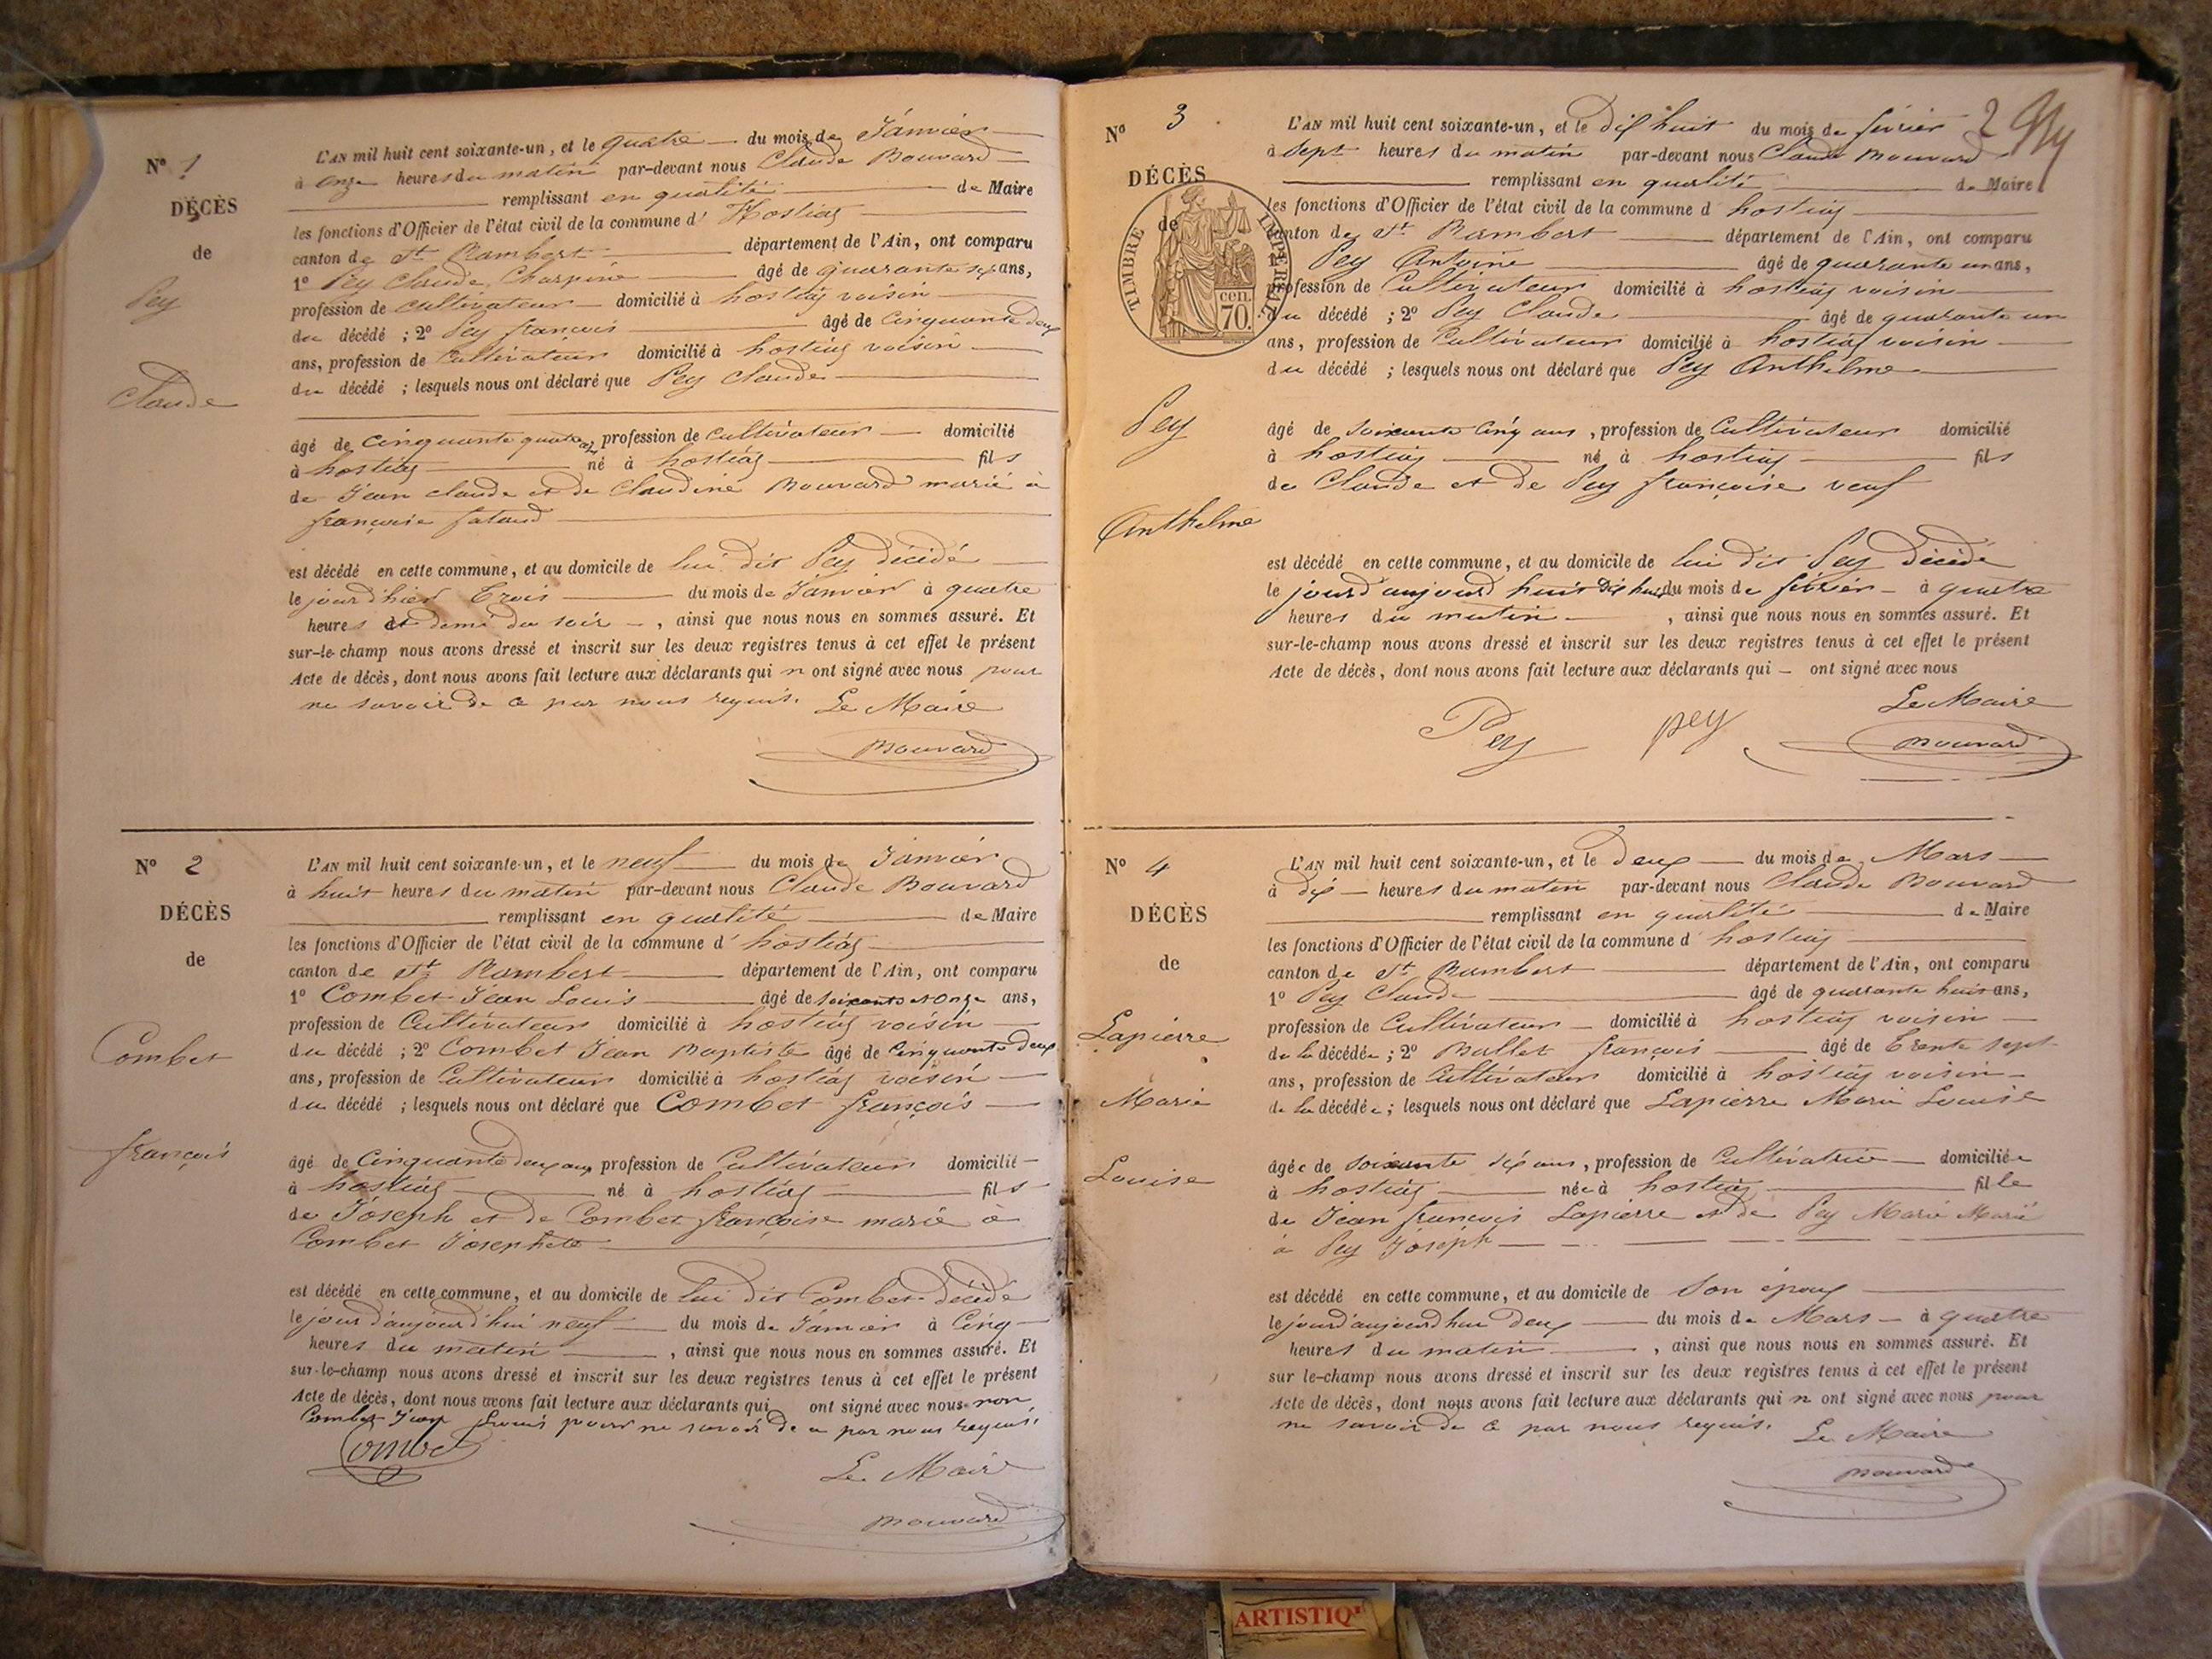 Nº 1
DÉCÈS
de
Pey
Claude
L'AN mil huit cent soixante-un, et le quatre du mois de Janvier
à onze heures du matin par-devant nous Claude Bouvard
remplissant en qualité de Maire
les fonctions d'Officier de l'état civil de la commune d' Hostiaz
canton de St Rambert département de l'Ain, ont comparu
1º Pey Claude Charpine âgé de quarante sept ans,
profession de cultivateur domicilié à hostiaz voisin
du décédé ; 2º Pey françois âgé de Cinquante deux
ans, profession de Cultivateur domicilié à hostiaz voisin
du décédé ; lesquels nous ont déclaré que Pey Claude
âgé de Cinquante quatre ans, profession de Cultivateur domicilié
à hostiaz né à hostiaz fils
de Jean claude et de Claudine Bouvard marié à
françoise
est décédé en cette commune, et au domicile de lui dit Pey décédé
le jour d'hier Trois du mois de Janvier à quatre
heures et demi du soir, ainsi que nous nous en sommes assuré. Et
sur-le-champ nous avons dressé et inscrit sur les deux registres tenus à cet effet le présent
Acte de décès, dont nous avons fait lecture aux déclarants qui n ont signé avec nous pour
ne savoir de ce par nous requis. Le Maire
Bouvard
Nº 2
DÉCÈS
de
Combet
françois
L'AN mil huit cent soixante-un, et le neuf du mois de Janvier
à huit heures du matin par-devant nous Claude Bouvard
remplissant en qualité de Maire
les fonctions d'Officier de l'état civil de la commune d' hostiaz
canton de St Rambert département de l'Ain, ont comparu
1º Combet Jean Louis âgé de soixante et onze ans,
profession de Cultivateur domicilié à hostiaz voisin
du décédé ; 2º Combet Jean Baptiste âgé de Cinquante deux
ans, profession de Cultivateur domicilié à hostiaz voisin
du décédé ; lesquels nous ont déclaré que Combet françois
âgé de Cinquante deux ans profession de Cultivateur domicilié
à hostiaz né à hostiaz fils
de Joseph et de Combet françoise marié à
Combet Josephte
est décédé en cette commune, et au domicile de lui dit Combet décédé
le jour d'aujourd'hui neuf du mois de Janvier à Cinq
heures du matin, ainsi que nous nous en sommes assuré. Et
sur-le-champ nous avons dressé et inscrit sur les deux registres tenus à cet effet le présent
Acte de décès, dont nous avons fait lecture aux déclarants qui ont signé avec nous non
Combet Jean Louis pour ne savoir de ce par nous requis.
Combet
Le Maire
Bouvard
2
Nº 3
DÉCÈS
de
TIMBRE IMPERIAL
cen.
70.
Pey
Anthelme
L'AN mil huit cent soixante-un, et le dix huit du mois de février
à sept heures du matin par-devant nous Claude Bouvard
remplissant en qualité de Maire
les fonctions d'Officier de l'état civil de la commune d hostiaz
canton de St Rambert département de l'Ain, ont comparu
Pey Antoine âgé de quarante un ans,
profession de Cultivateur domicilié à hostiaz voisin
du décédé ; 2º Pey Claude âgé de quarante un
ans, profession de Cultivateur domicilié à hostiaz voisin
du décédé ; lesquels nous ont déclaré que Pey Anthelme
âgé de soixante Cinq ans, profession de Cultivateur domicilié
à hostiaz né à hostiaz fils
de Claude et de Pey françoise veuf
est décédé en cette commune, et au domicile de lui dit Pey décédé
le jour d'aujourd huit Dix huit du mois de février à quatre
heures du matin, ainsi que nous nous en sommes assuré. Et
sur-le-champ nous avons dressé et inscrit sur les deux registres tenus à cet effet le présent
Acte de décès, dont nous avons fait lecture aux déclarants qui ont signé avec nous
Le Maire
Pey pey Bouvard
Nº 4
DÉCÈS
de
Lapierre
Marie
Louise
L'AN mil huit cent soixante-un, et le Deux du mois de Mars
à dix heures du matin par-devant nous Claude Bouvard
remplissant en qualité de Maire
les fonctions d'Officier de l'état civil de la commune d' hostiaz
canton de St Rambert département de l'Ain, ont comparu
1º Pey Claude âgé de quarante huit ans,
profession de Cultivateur domicilié à hostiaz voisin
de la décédée ; 2º Ballet françois âgé de Trente sept
ans, profession de Cultivateur domicilié à hostiaz voisin
de la décédée ; lesquels nous ont déclaré que Lapierre Marie Louise
âgée de soixante dix ans, profession de Cultivatrice domiciliée
à hostiaz née à hostiaz fille
de Jean françois Lapierre et de Pey Marie Marié
à Pey Joseph
est décédé en cette commune, et au domicile de Son époux
le jour d'aujourd hui Deux du mois de Mars à quatre
heures du matin, ainsi que nous nous en sommes assuré. Et
sur le-champ nous avons dressé et inscrit sur les deux registres tenus à cet effet le présent
Acte de décès, dont nous avons fait lecture aux déclarants qui n ont signé avec nous pour
ne savoir de ce par nous requis. Le Maire
Bouvard
ARTISTIQ